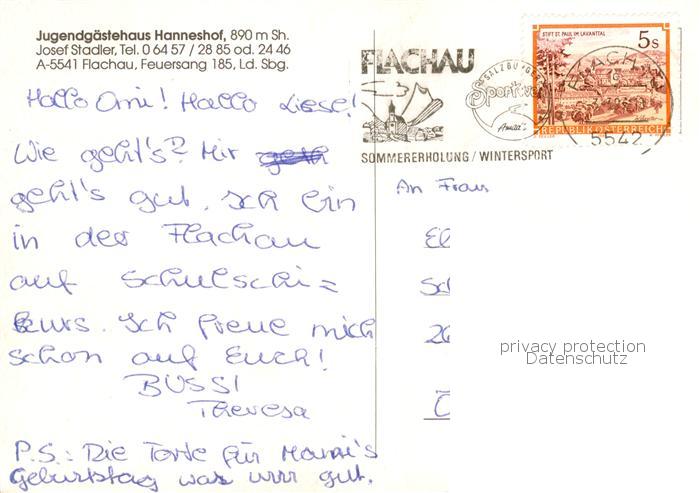 Jugendgästehaus Hanneshof, 890 m Sh.
Josef Stadler, Tel. 0 64 57 / 28 85 od. 24 46
A-5541 Flachau, Feuersang 185, Ld. Sbg.
Hallo Omi! Hallo Liesel!
Wie geht's? Mir
geht's gut. Ich bin
in der Flachau
auf Schulschi=
kurs. Ich freue mich
schon auf Euch!
BUSSI
Theresa
P.S.: Die Torte für Mami's
Geburtstag war urr gut.
FLACHAU
SALZBURGER
Sportwelt
Amadé
SOMMERERHOLUNG / WINTERSPORT
STIFT ST. PAUL IM LAVANTTAL
5 s
REPUBLIK ÖSTERREICH
5542
An Frau
El
Sc
20
privacy protection
Datenschutz